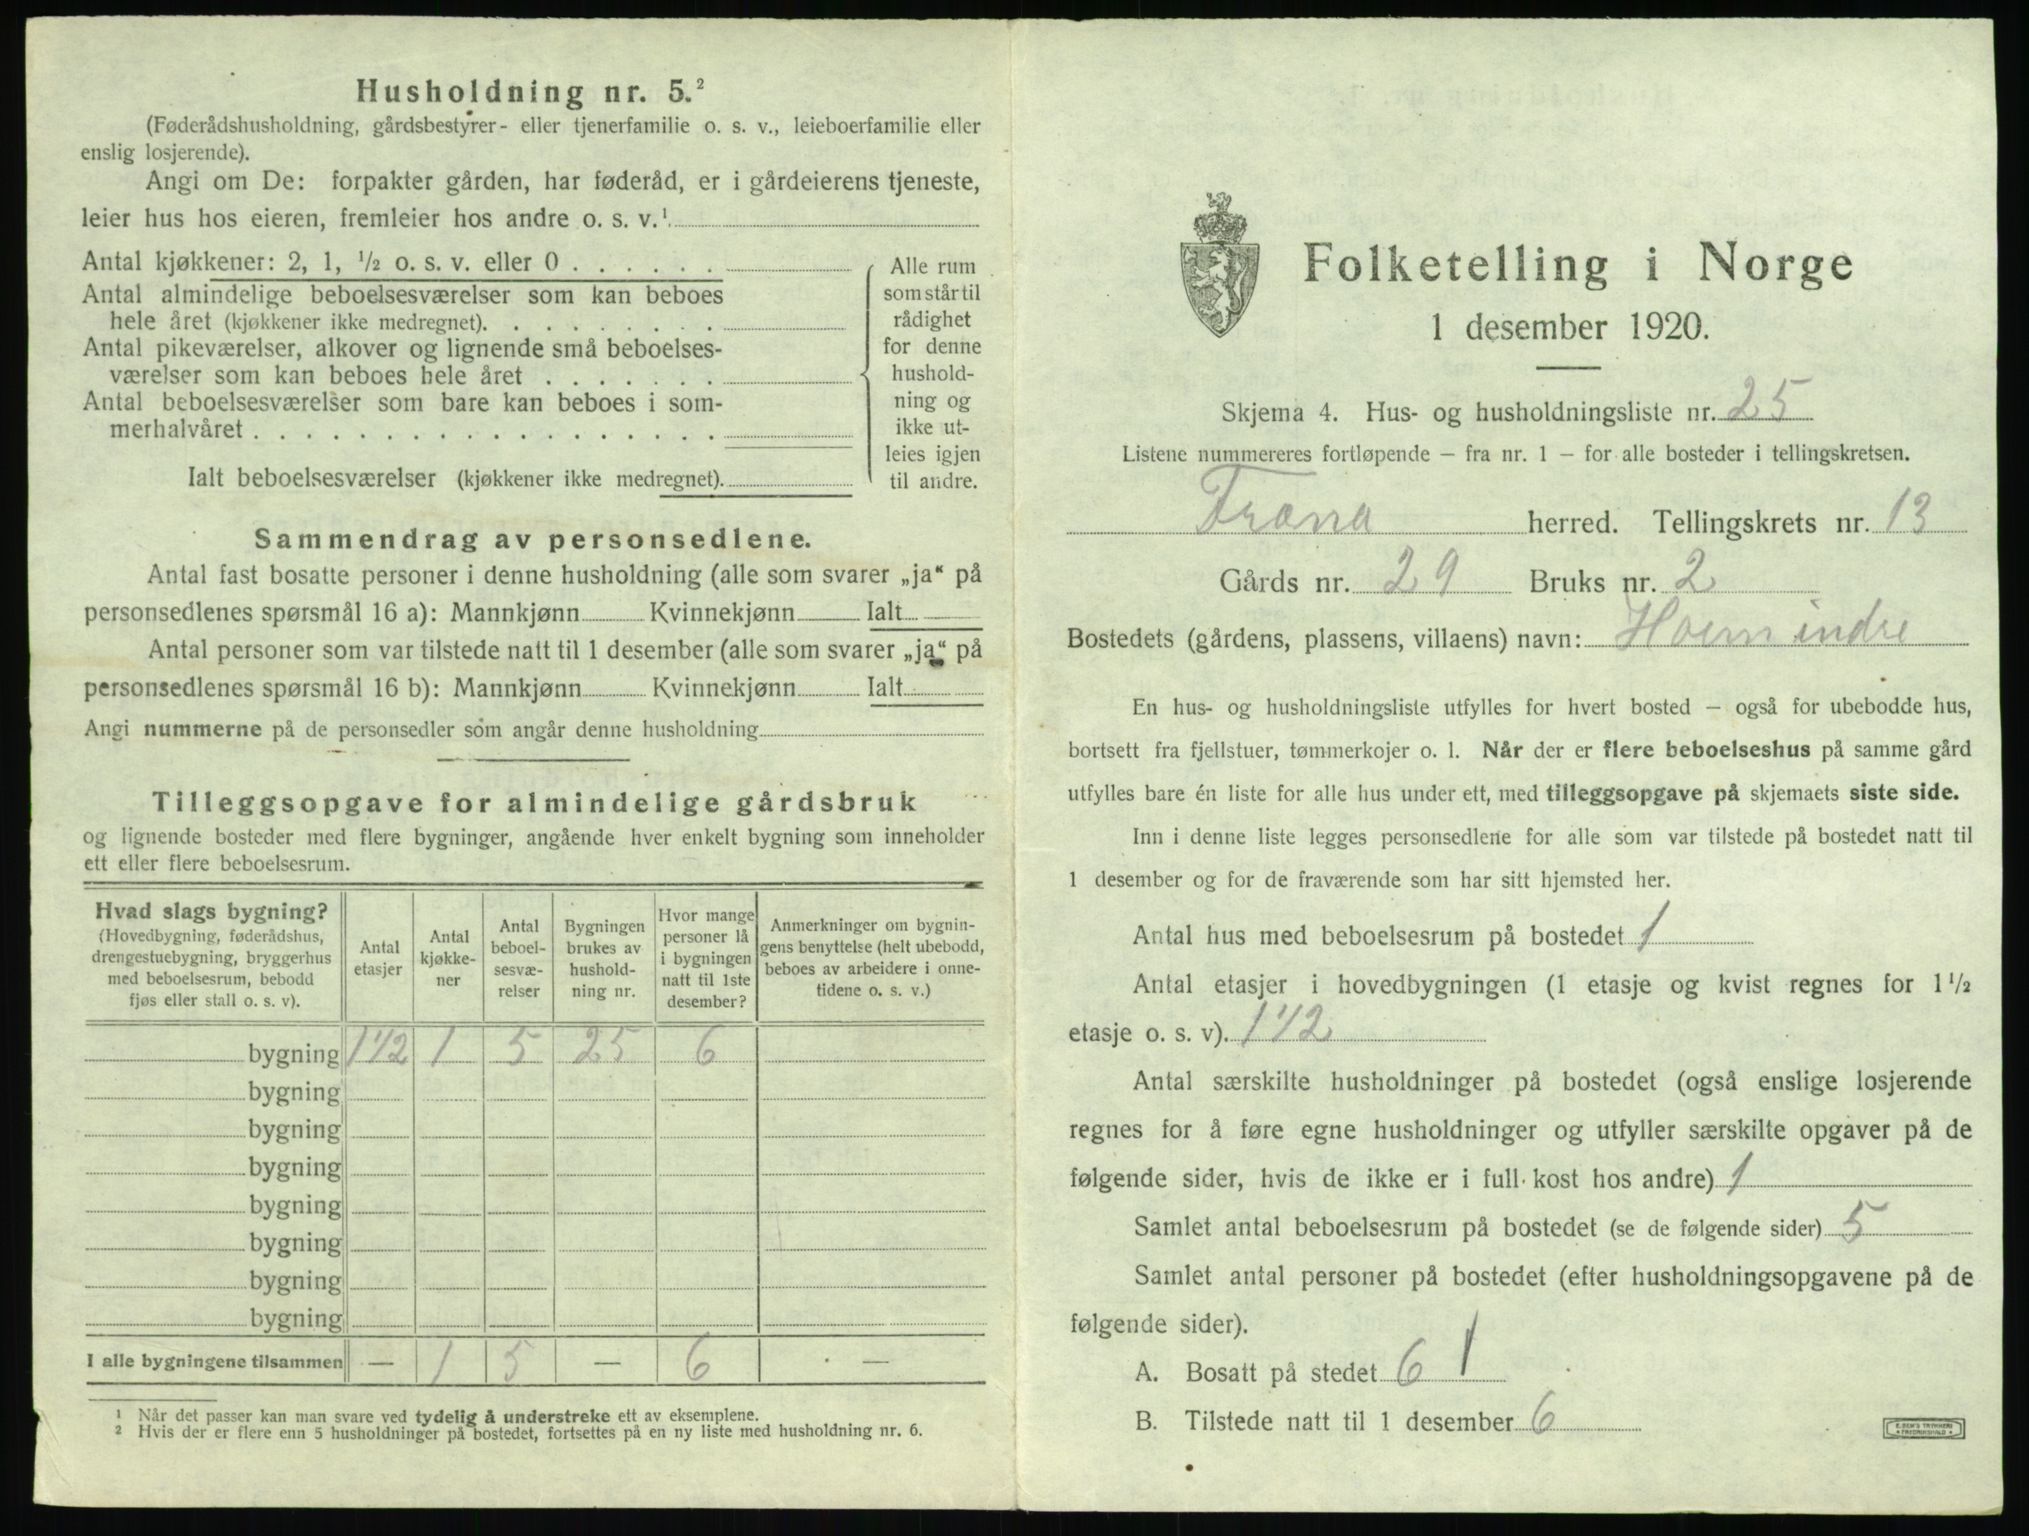 Husholdning nr. 5.²
(Føderådshusholdning, gårdsbestyrer- eller tjenerfamilie o. s. v., leieboerfamilie eller
enslig losjerende).
Angi om De: forpakter gården, har føderåd, er i gårdeierens tjeneste,
leier hus hos eieren, fremleier hos andre o. s. v.¹
Antal kjøkkener: 2, 1, ½ o. s. v. eller 0 . . . . . .
Antal almindelige beboelsesværelser som kan beboes
hele året (kjøkkener ikke medregnet). . . . . . . . .
Antal pikeværelser, alkover og lignende små beboelses-
værelser som kan beboes hele året . . . . . . .
Antal beboelsesværelser som bare kan beboes i som-
merhalvåret . . . . . . . . . . . . . . . . . .
Ialt beboelsesværelser (kjøkkener ikke medregnet).
Alle rum
som står til
rådighet
for denne
hushold-
ning og
ikke ut-
leies igjen
til andre.
Sammendrag av personsedlene.
Antal fast bosatte personer i denne husholdning (alle som svarer „ja“ på
personsedlenes spørsmål 16 a): Mannkjønn Kvinnekjønn Ialt
Antal personer som var tilstede natt til 1 desember (alle som svarer „ja“ på
personsedlenes spørsmål 16 b): Mannkjønn Kvinnekjønn Ialt
Angi nummerne på de personsedler som angår denne husholdning
Tilleggsopgave for almindelige gårdsbruk
og lignende bosteder med flere bygninger, angående hver enkelt bygning som inneholder
ett eller flere beboelsesrum.
Hvad slags bygning?
(Hovedbygning, føderådshus,
drengestuebygning, bryggerhus
med beboelsesrum, bebodd
fjøs eller stall o. s. v).
Antal
etasjer
Antal
kjøkke-
ner
Antal
beboel-
sesvæ-
relser
Bygningen
brukes av
hushold-
ning nr.
Hvor mange
personer lå
i bygningen
natt til 1ste
desember?
Anmerkninger om bygnin-
gens benyttelse (helt ubebodd,
beboes av arbeidere i onne-
tidene o. s. v.)
bygning 1 1/2 1 5 25 6
bygning
bygning
bygning
bygning
bygning
bygning
bygning
I alle bygningene tilsammen — 1 5 — 6 —
¹ Når det passer kan man svare ved tydelig å understreke ett av eksemplene.
² Hvis der er flere enn 5 husholdninger på bostedet, fortsettes på en ny liste med husholdning nr. 6.
Folketelling i Norge
1 desember 1920.
Skjema 4. Hus- og husholdningsliste nr. 25
Listene nummereres fortløpende – fra nr. 1 – for alle bosteder i tellingskretsen.
Fræna herred. Tellingskrets nr. 13
Gårds nr. 29 Bruks nr. 2
Bostedets (gårdens, plassens, villaens) navn: Hoem indre
En hus- og husholdningsliste utfylles for hvert bosted – også for ubebodde hus,
bortsett fra fjellstuer, tømmerkojer o. l. Når der er flere beboelseshus på samme gård
utfylles bare én liste for alle hus under ett, med tilleggsopgave på skjemaets siste side.
Inn i denne liste legges personsedlene for alle som var tilstede på bostedet natt til
1 desember og for de fraværende som har sitt hjemsted her.
Antal hus med beboelsesrum på bostedet 1
Antal etasjer i hovedbygningen (1 etasje og kvist regnes for 1½
etasje o. s. v). 1 1/2
Antal særskilte husholdninger på bostedet (også enslige losjerende
regnes for å føre egne husholdninger og utfyller særskilte opgaver på de
følgende sider, hvis de ikke er i full kost hos andre) 1
Samlet antal beboelsesrum på bostedet (se de følgende sider) 5
Samlet antal personer på bostedet (efter husholdningsopgavene på de
følgende sider).
A. Bosatt på stedet 6 1
B. Tilstede natt til 1 desember 6
E. SEM'S TRYKKERI
* FREDRIKSHALD *